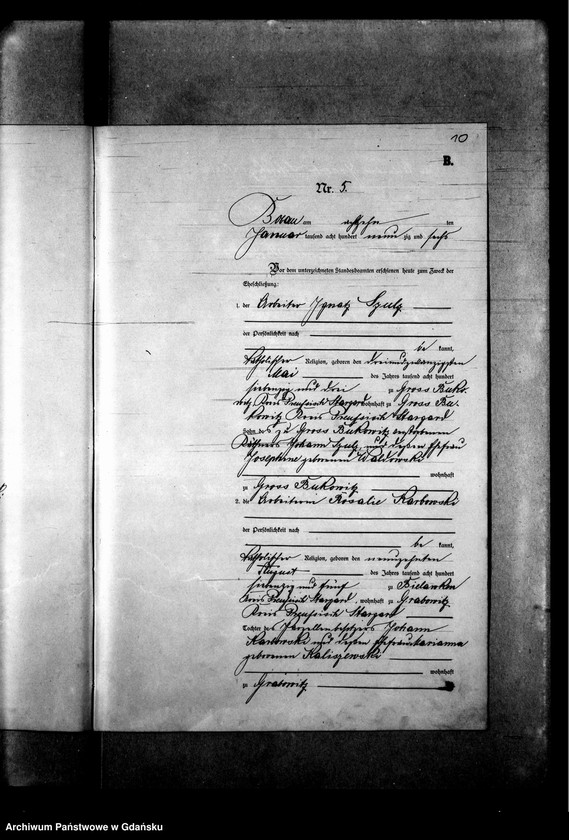 10
B.
Nr. 5.
Bozau am achtzehn ten
Januar tausend acht hundert neun zig und sechs
Vor dem unterzeichneten Standesbeamten erschienen heute zum Zweck der
Eheschließung:
1. der Arbeiter Ignatz Szulz
der Persönlichkeit nach
be kannt,
katholischer Religion, geboren den dreiundzwanzigsten
Mai des Jahres tausend acht hundert
siebenzig und drei zu Gross Buko-
witz Kreis Preußisch Stargard wohnhaft zu Gross Bu-
kowitz Kreis Preußisch Stargard
Sohn des zu Gross Bukowitz verstorbenen
Johann Szulz und dessen Ehefrau
Josephine geborenen Waldowski
wohnhaft
zu Gross Bukowitz
2. die Arbeiterin Rosalie Karbowski
der Persönlichkeit nach
be kannt,
katholischer Religion, geboren den neunzehnten
August des Jahres tausend acht hundert
siebenzig und fünf zu Bielawken
Kreis Preußisch Stargard, wohnhaft zu Grabowitz
Kreis Preußisch Stargard
Tochter des Parzellenbesitzers Johann
Karbowski und dessen Ehefrau Marianna
geborenen Kaliszewski
wohnhaft
zu Grabowitz
Archiwum Państwowe w Gdańsku